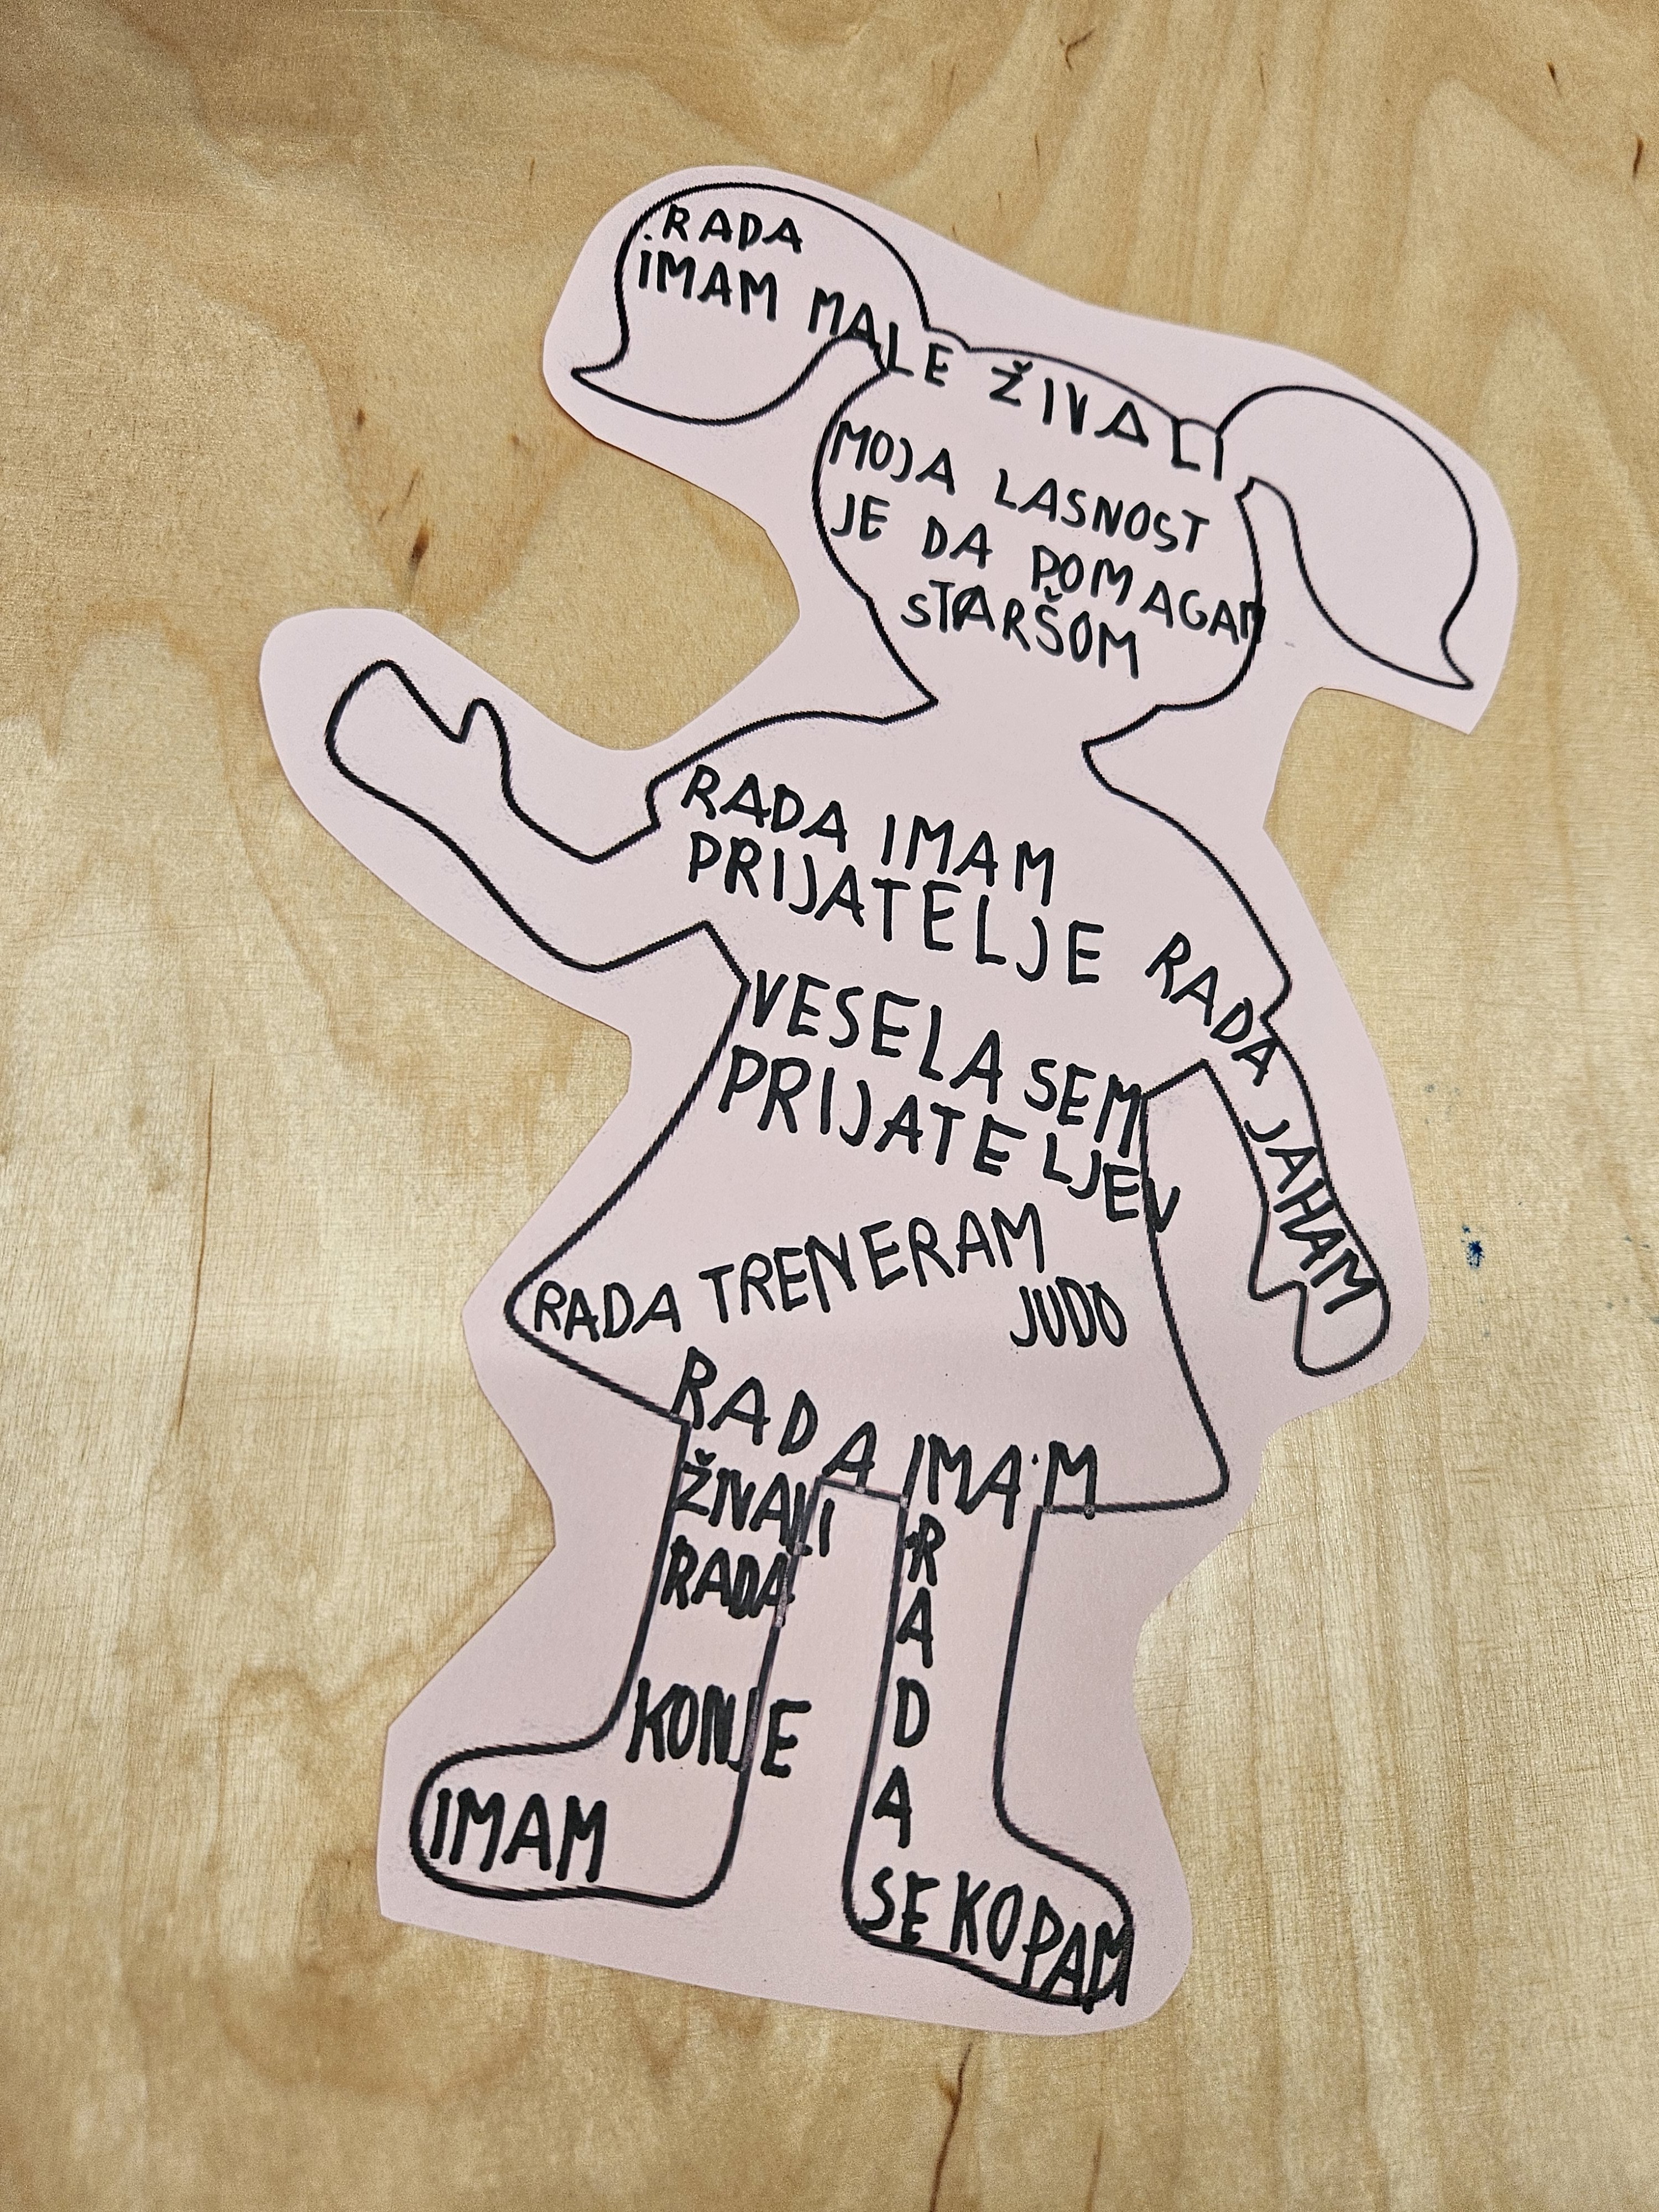 RADA
IMAM MALE ŽIVALI
MOJA LASNOST
JE DA POMAGAM
STARŠOM
RADA IMAM
PRIJATELJE
RADA JAHAM
VESELA SEM
PRIJATELJEV
RADA TRENERAM
JUDO
RADA IMAM
ŽIVALI
RADA
IMAM
KONJE
RADA
SE KOPAM